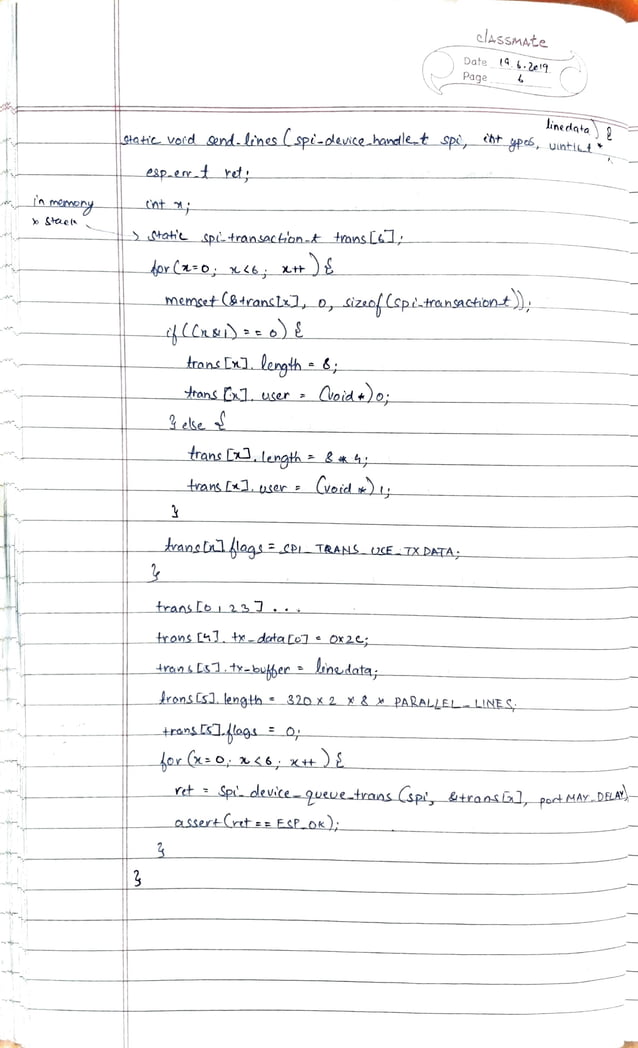 classmate
Date 19.6.2019
Page 6
static void send_lines (spi_device_handle_t spi, int ypos, uint16_t * linedata) {
esp_err_t ret;
in memory
int x;
x stack
> static spi_transaction_t trans[6];
for (x=0; x<6; x++) {
memset (&trans[x], 0, sizeof(spi_transaction_t));
if ((x&1) == 0) {
trans [x]. length = 8;
trans [x]. user = (void *) 0;
} else {
trans [x]. length = 8 * 4;
trans [x]. user = (void *) 1;
}
trans[x].flags = SPI_TRANS_USE_TXDATA;
}
trans [0,1 2 3 ] ...
trans [4]. tx_data[0] = 0x2C;
trans [5]. tx_buffer = linedata;
trans[5]. length = 320 x 2 x 8 x PARALLEL_LINES;
trans [5].flags = 0;
for (x=0; x<6; x++) {
ret = spi_device_queue_trans (spi, &trans[x], portMAX_DELAY)
assert (ret == ESP_OK);
}
}